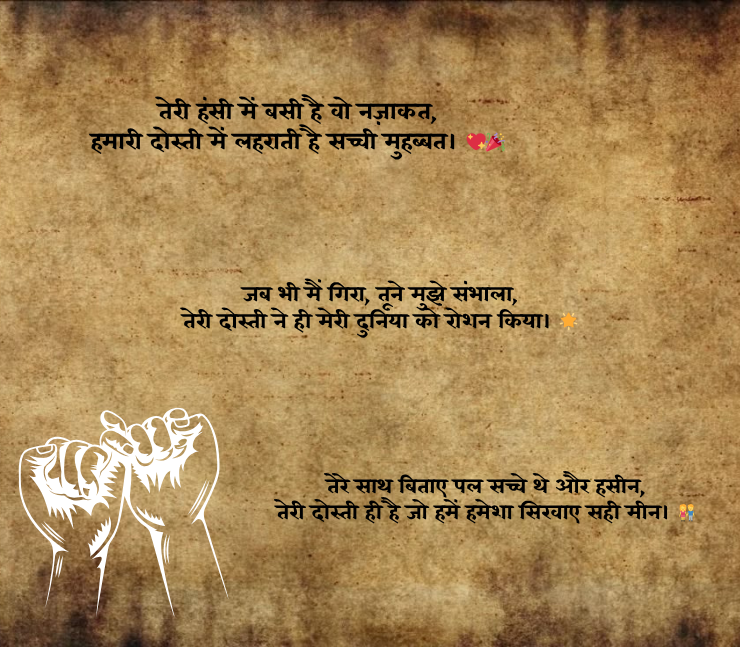 तेरी हंसी में बसी है वो नज़ाकत,
हमारी दोस्ती में लहराती है सच्ची मुहब्बत। 💖🎉
जब भी मैं गिरा, तूने मुझे संभाला,
तेरी दोस्ती ने ही मेरी दुनिया को रोशन किया। ☀️
तेरे साथ बिताए पल सच्चे थे और हसीन,
तेरी दोस्ती ही है जो हमें हमेशा सिखाए सही मीन। 👫